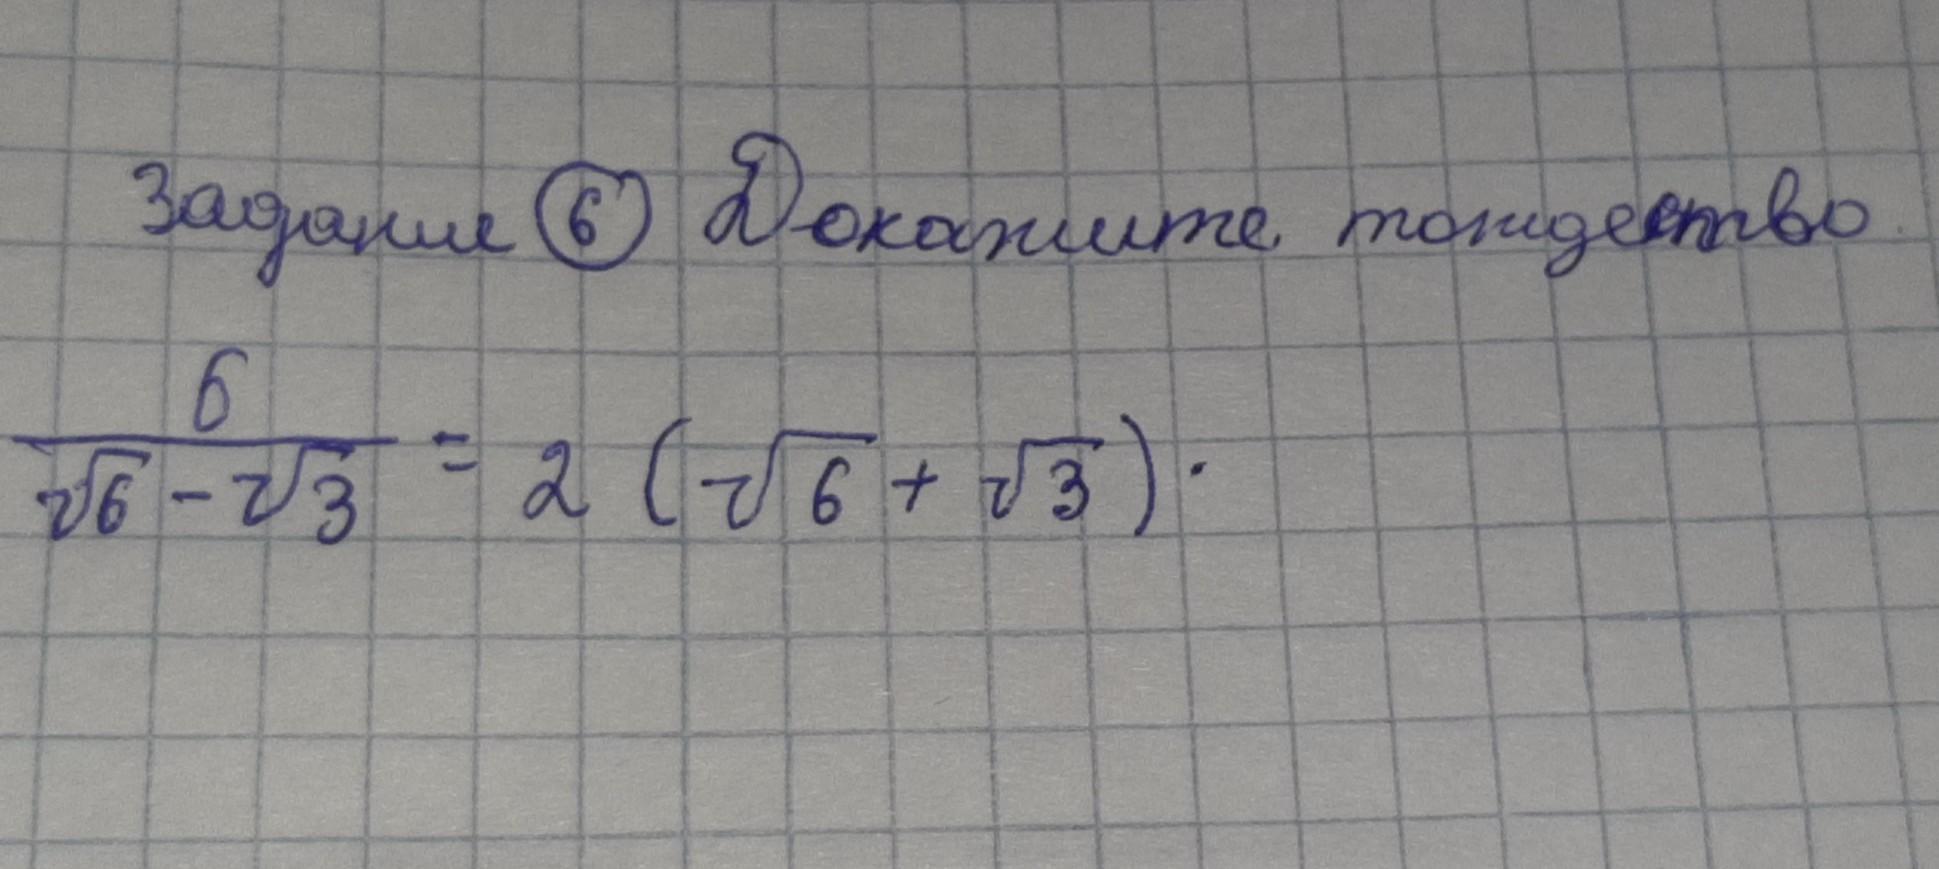 Задание 6 Докажите тождество.
6/(√6 - √3) = 2 (√6 + √3).